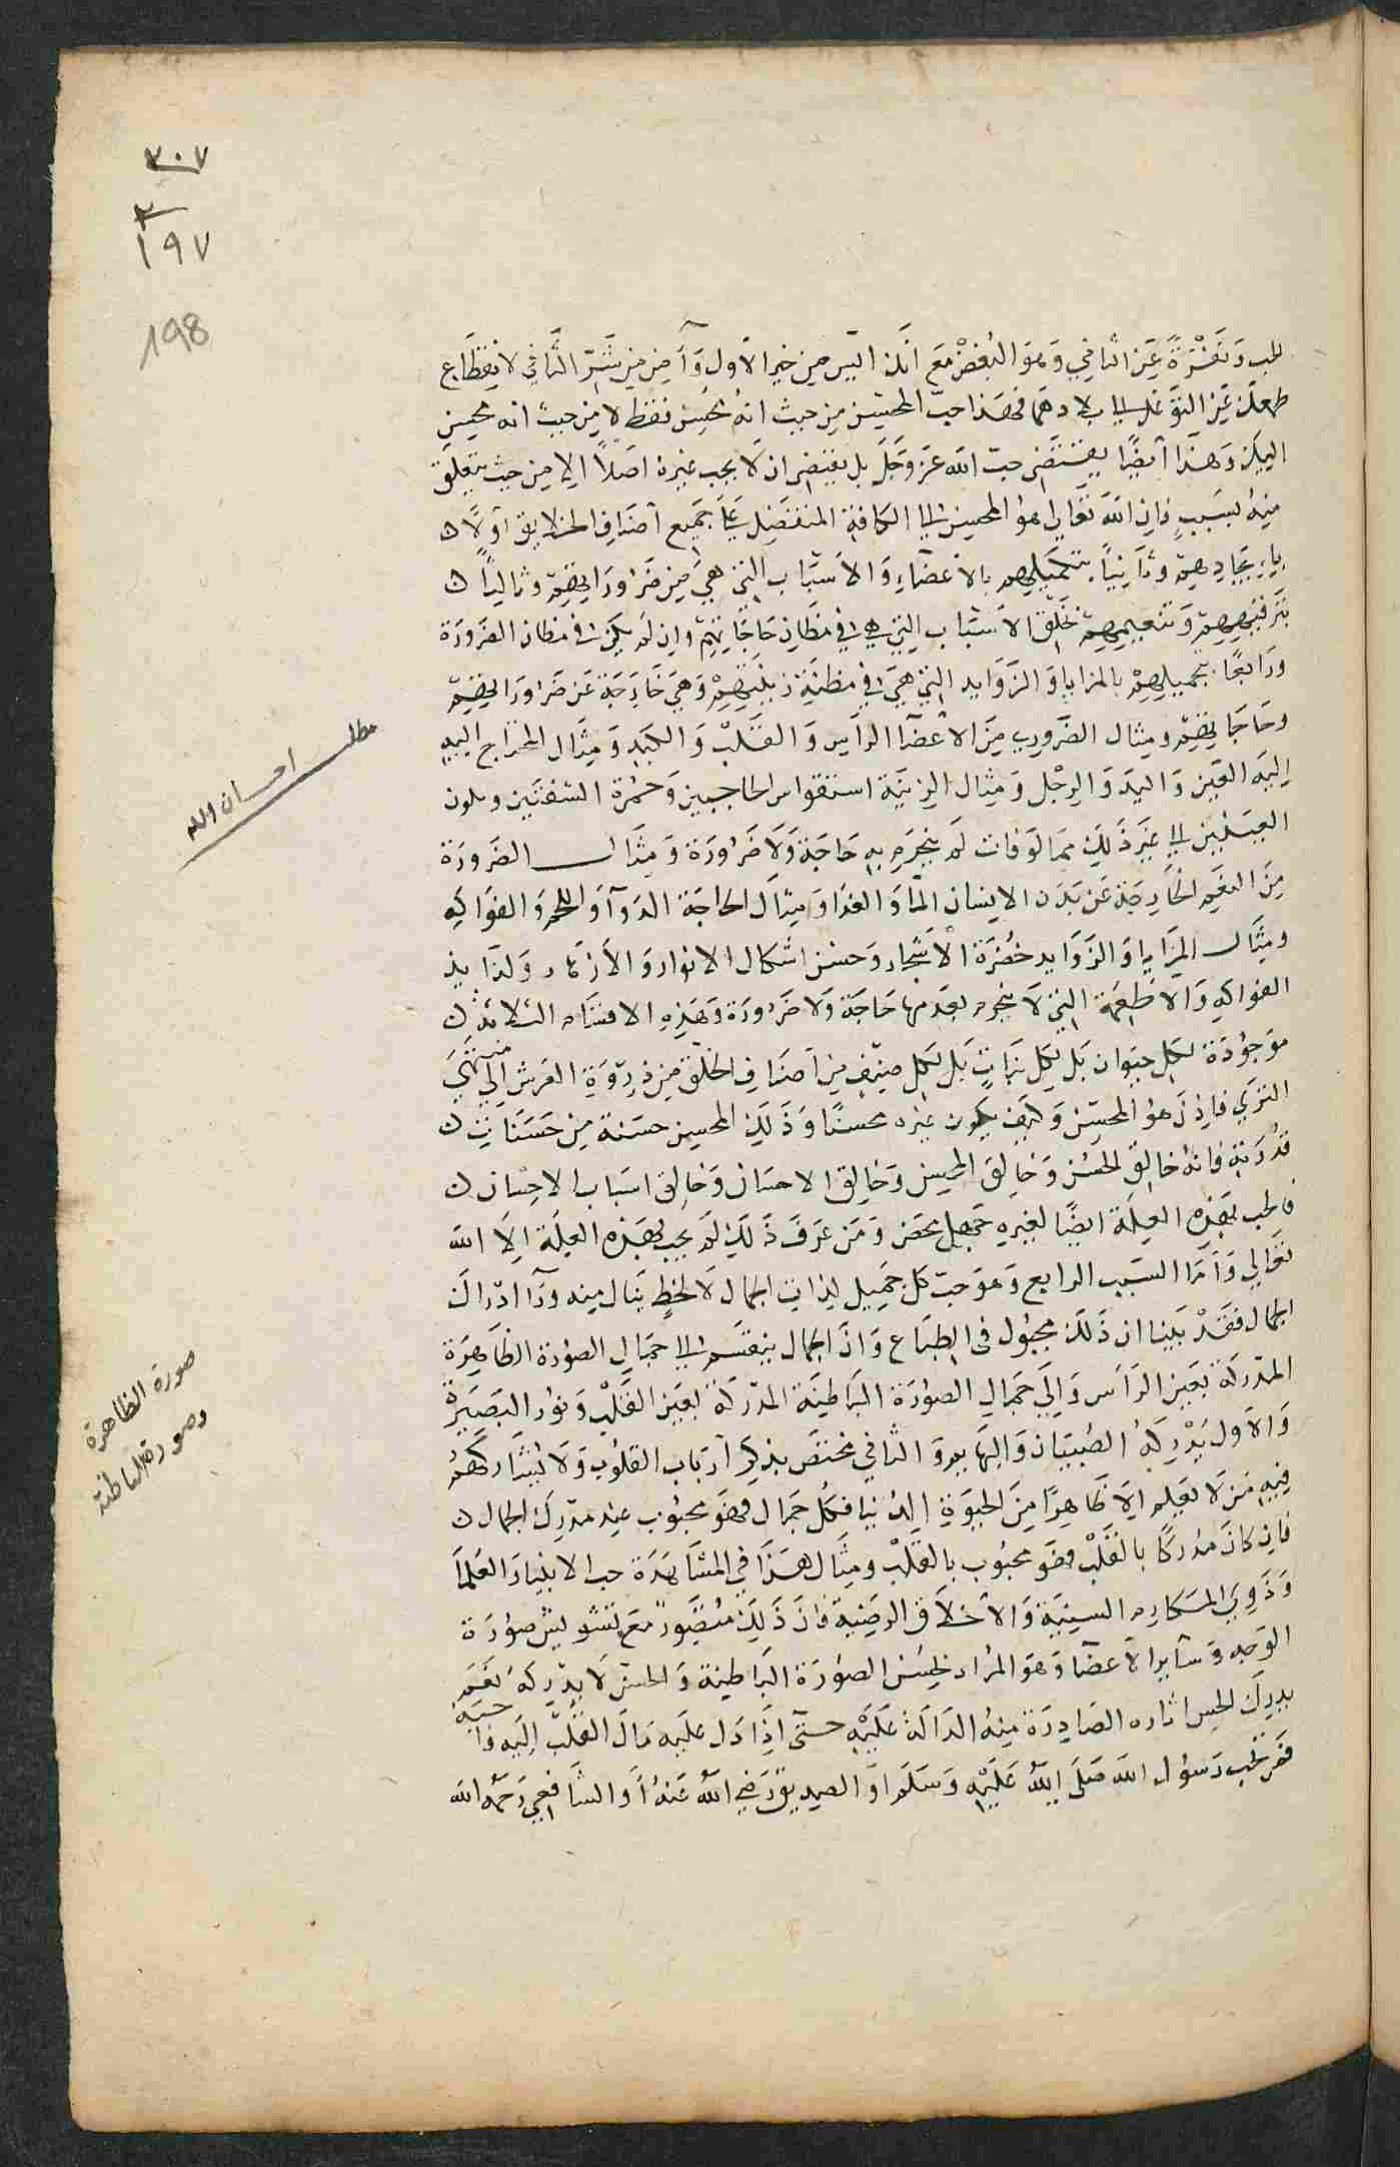 ٣٠٧
٢
١٩٧
198
الحب ونفرة عن الثاني وهو البغض مع انك آيس من خير الاول وآمن من شر الثاني لانقطاع
طمعك عن التوغل الى بلادهما فهذا حب المحسن من حيث انه محسن فقط لا من حيث انه محسن
اليك وهذا أيضًا يقتضى حب الله عز وجل بل يقتضى ان لا يحب غيره اصلاً الا من حيث يتعلق
منه بسبب فان الله تعالى هو المحسن الى الكافة المتفضل على جميع أصناف الخلايق أولاً
بايجادهم وثانياً بتكميلهم بالأعضاء والاسباب التي هي من ضروراتهم وثالثاً
بترفيههم وتنعيمهم بخلق الاسباب التي هي في مظان حاجاتهم وان لم يكن في مظان الضرورة
ورابعًا بتجميلهم بالمزايا والزوايد التي هي في مظنة زينتهم وهي خارجة عن ضروراتهم
وحاجاتهم ومثال الضروري من الاعضا الرأس والقلب والكبد ومثال المحتاج اليه
اليه العين واليد والرجل ومثال الزينة استقواس الحاجبين وحمرة الشفتين وتلون
العينين الى غير ذلك مما لو فات لم ينخرم به حاجة ولا ضرورة ومثال الضرورة
من النعم الخارجة عن بدن الانسان الما والغذا ومثال الحاجة الدوآ واللحم والفواكه
ومثال المزايا والزوايد خضرة الأشجار وحسن اشكال الانوار والازهار ولذايذ
الفواكه والاطعمة التي لا ينخرم بعدمها حاجة ولا ضرورة وهذه الاقسام الثلاثة
موجودة لكل حيوان بل لكل نبات بل لكل صنف من أصناف الخلق من ذروة العرش الى منتهى
الثرى فاذن هو المحسن وكيف يكون غيره محسنًا وذلك المحسن حسنة من حسنات
قدرته فانه خالق الحسن وخالق المحسن وخالق الاحسان وخالق اسباب الاحسان
فالحب بهذه العلة ايضًا لغيره جهل محض ومن عرف ذلك لم يحب بهذه العلة الا الله
تعالى وأما السبب الرابع وهو حب كل جميل لذات الجمال لا لحظ ينال منه ورآ ادراك
الجمال فقد بينا ان ذلك مجبول فى الطباع وان الجمال ينقسم الى جمال الصورة الظاهرة
المدركة بعين الرأس والى جمال الصورة الباطنة المدركة بعين القلب ونور البصيرة
والاول يدركه الصبيان والبهايم والثاني مختص بذكر أرباب القلوب ولا يشاركهم
فيه من لا يعلم الا ظاهرًا من الحيوة الدنيا فكل جمال فهو محبوب عند مدرك الجمال
فان كان مدركًا بالقلب فهو محبوب بالقلب ومثال هذا في المشاهدة حب الانبيا والعلما
وذوي المكارم السنية والاخلاق الرضية فان ذلك متصور مع تشويش صورة
الوجه وسآير الأعضا وهو المراد بحسن الصورة الباطنة والحس لا يدركه نعم
يدرك الحس اثاره الصادرة منه الدالة عليه حتى اذا دل عليه مال القلب اليه فاحبه
فمن يحب رسول الله صلى الله عليه وسلم او الصديق رضي الله عنه أو الشافعي رحمه الله
مطلب احسان الله
صورة الظاهرة
وصورة الباطنة